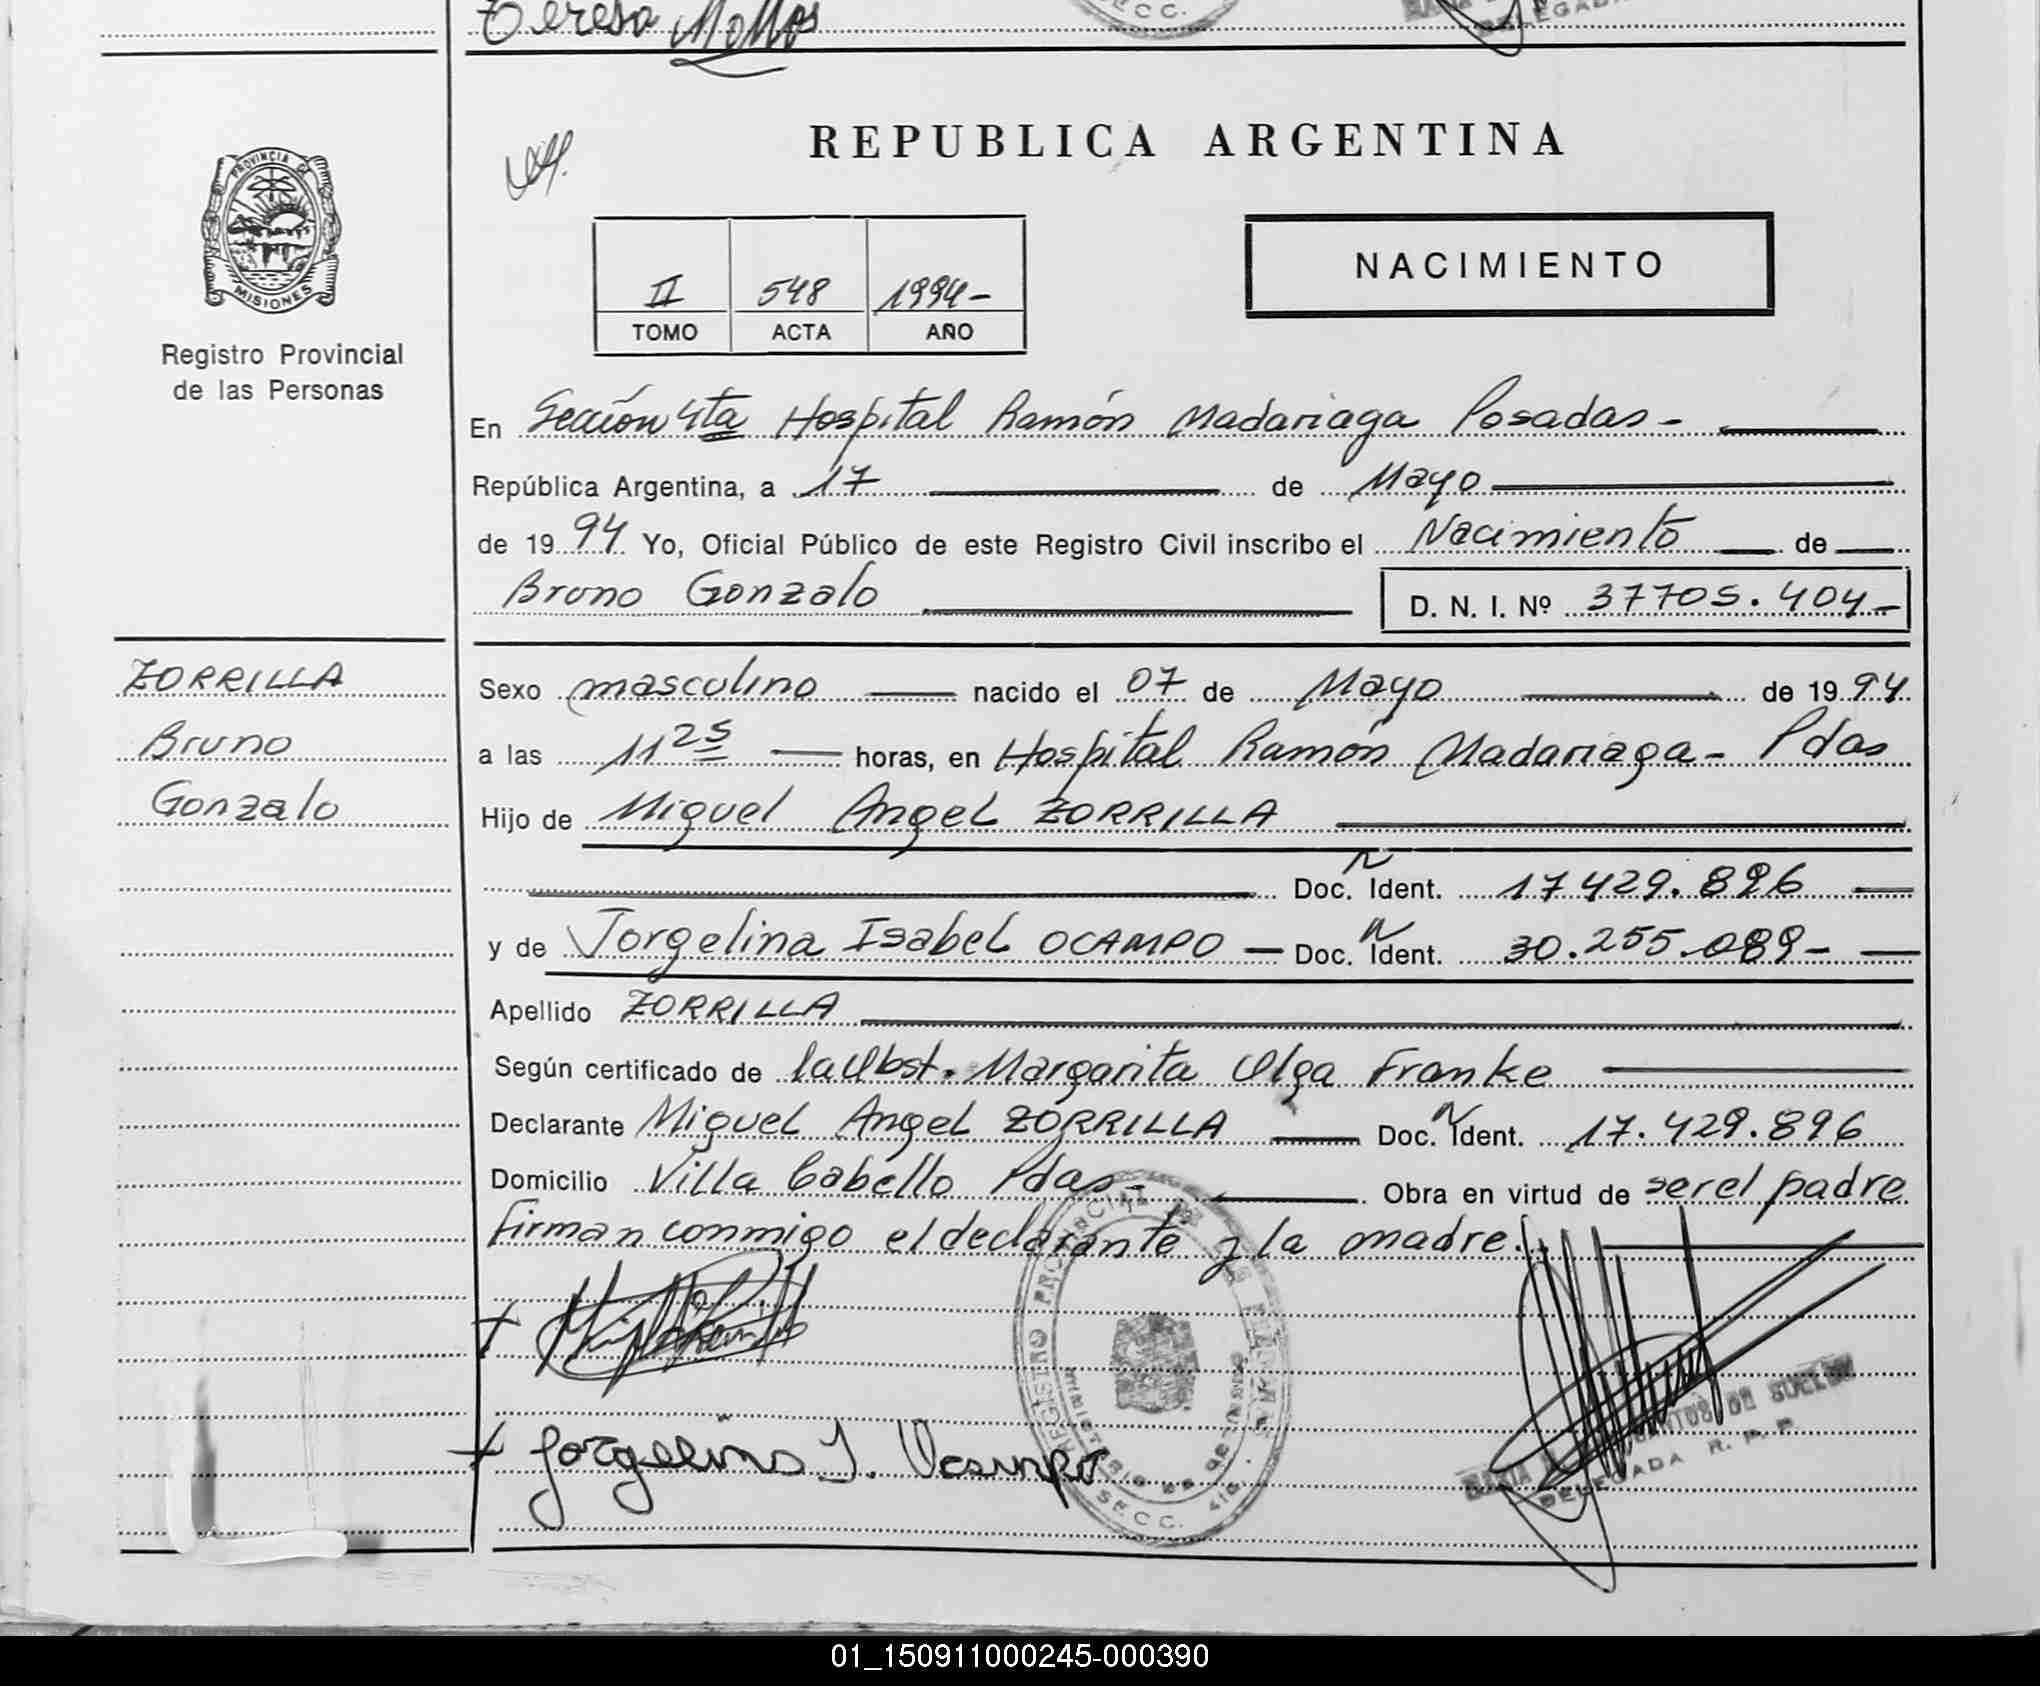 Teresa
SECC.
DELEGADA
PROVINCIA
MISIONES
Registro Provincial
de las Personas
REPUBLICA ARGENTINA
II 548 1994-
TOMO ACTA AÑO
NACIMIENTO
En Sección 4ta Hospital Ramón Madariaga Posadas -
República Argentina, a 17 de Mayo
de 1994 Yo, Oficial Público de este Registro Civil inscribo el Nacimiento de
Bruno Gonzalo D. N. I. Nº 37705.404-
ZORRILLA
Bruno
Gonzalo
Sexo masculino nacido el 07 de Mayo de 1994
a las 11 25 horas, en Hospital Ramón Madariaga - Pdas
Hijo de Miguel Angel ZORRILLA
Doc. N Ident. 17.429.896
y de Jorgelina Isabel OCAMPO - Doc. N Ident. 30.255.089-
Apellido ZORRILLA
Según certificado de la Obst. Margarita Olga Franke
Declarante Miguel Angel ZORRILLA Doc. N Ident. 17.429.896
Domicilio Villa Cabello Pdas - Obra en virtud de ser el padre
firman conmigo el declarante y la madre.
Jorgelina I. Ocampo
REGISTRO PROVINCIAL DE LAS PERSONAS
SECC. 4ta.
DELEGADA R. P. P.
01_150911000245-000390